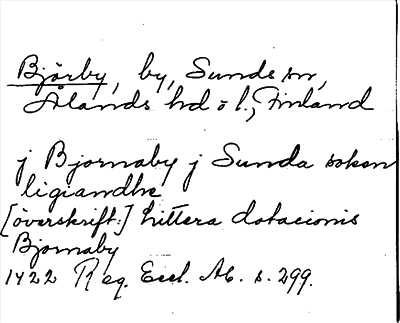 Björby, by, Sunds sn,
Ålands hd o l., Finland
j Bjornaby j Sunda soken
ligiandhe
[överskrift:] littera dotacionis
Bjornaby
1422 Reg. Eccl. Ab. s. 299.